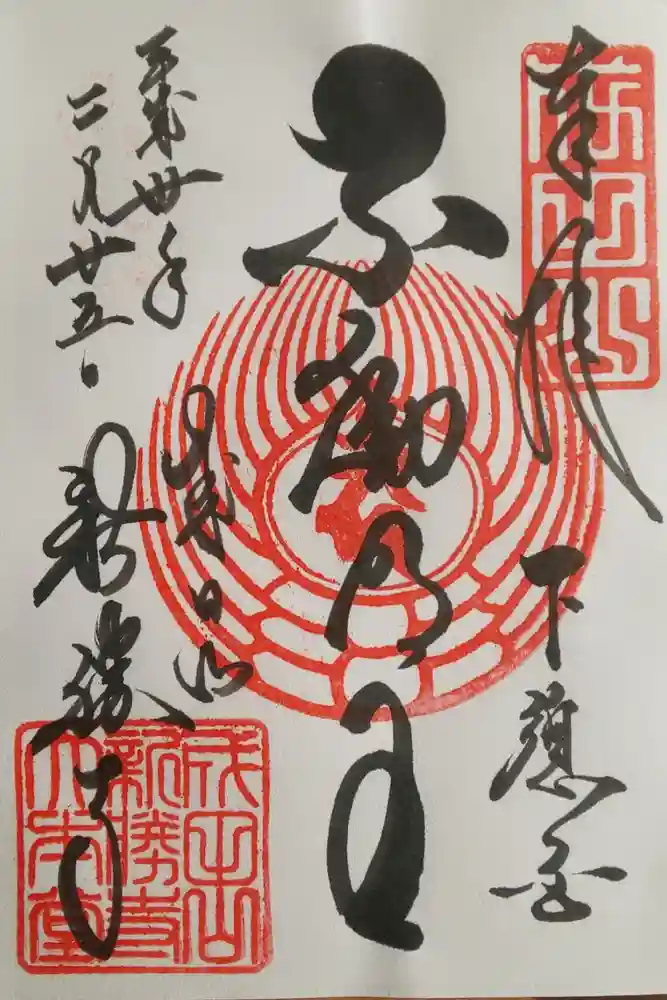 奉拝
下總国
不動明王
成田山
新勝寺
平成卅年
二月廿五日
成田山
成田山
新勝寺
大本堂